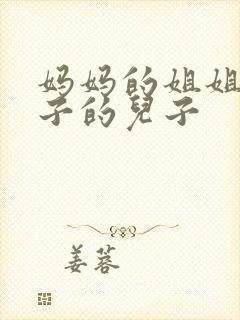 妈妈的姐姐
子的兒子
姜蓉